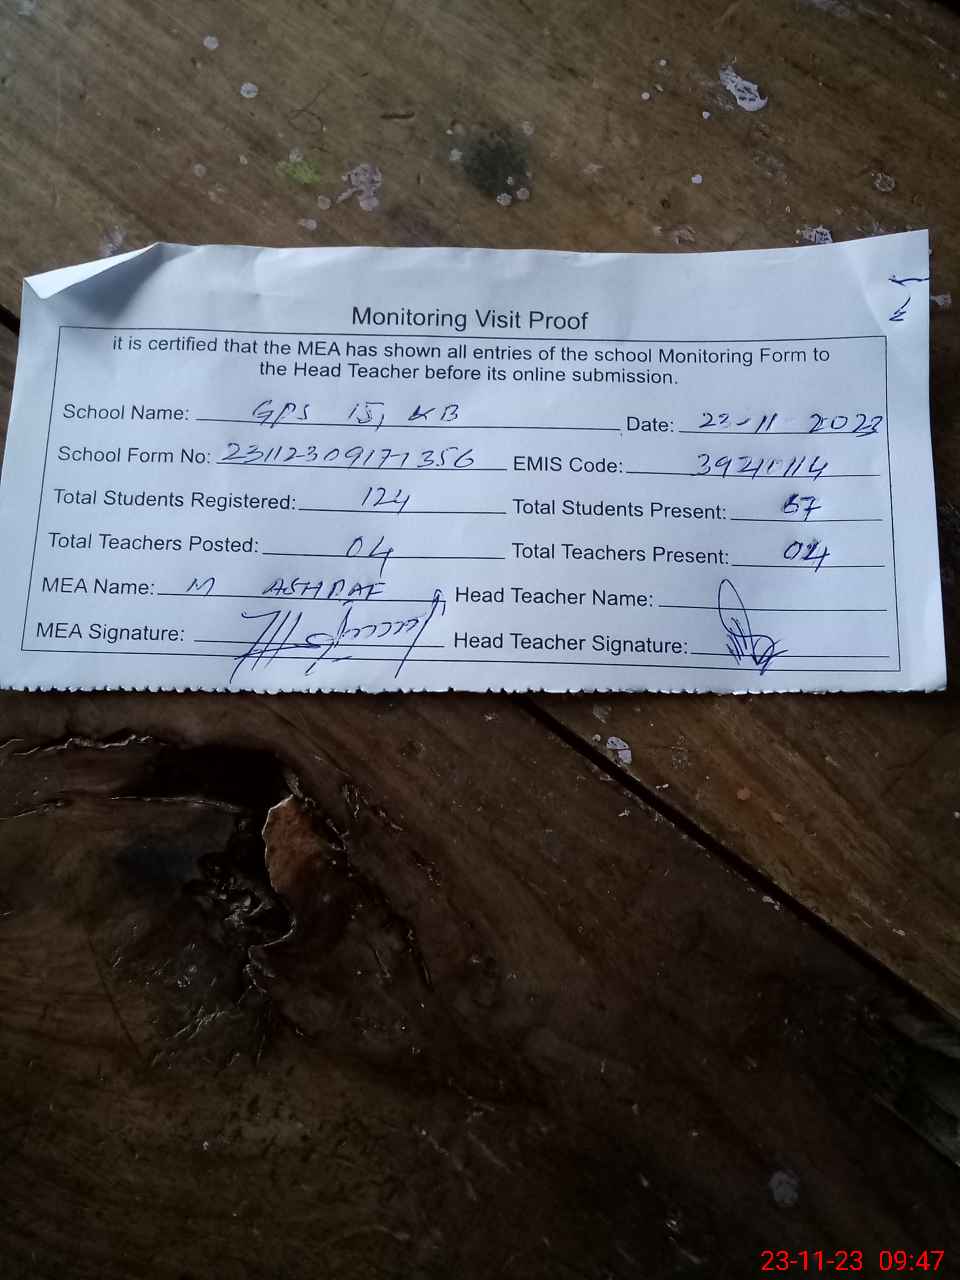 Monitoring Visit Proof
it is certified that the MEA has shown all entries of the school Monitoring Form to
the Head Teacher before its online submission.
School Name: GPS 15, KB Date: 23-11-2023
School Form No: EMIS Code:
Total Students Registered: 124 Total Students Present:
Total Teachers Posted: 04 Total Teachers Present: 04
MEA Name: M ASHRAF Head Teacher Name:
MEA Signature: Head Teacher Signature:
23-11-23 09:47